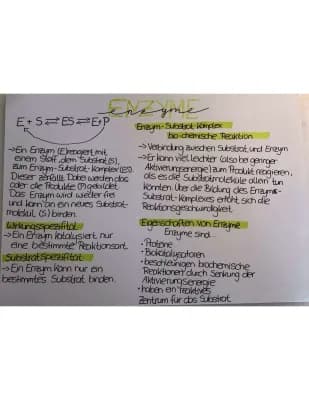 ENZYME
enzyme
E + S ⇌ ES ⇌ E+P
→ Ein Enzym (E) reagiert mit
einem Stoff, dem Substrat (S),
zum Enzym-Substrat-Komplex (ES).
Dieser zerfällt. Dabei werden das
oder die Produkte (P) gebildet.
Das Enzym wird wieder frei
und kann ein neues Substrat-
molekül (S) binden.
Wirkungsspezifität
→ Ein Enzym katalysiert nur
eine bestimmte Reaktionsart.
Substratspezifität
→ Ein Enzym kann nur ein
bestimmtes Substrat binden.
Enzym-Substrat Komplex
bio-chemische Reaktion
→ Verbindung zwischen Substrat und Enzym
→ Er kann viel leichter (also bei geringer
Aktivierungsenergie) zum Produkt reagieren,
als es die Substratmoleküle allein tun
könnten. Über die Bildung des Enzym-
Substrat-Komplexes erhöht sich die
Reaktionsgeschwindigkeit.
Eigenschaften von Enzyme
Enzyme sind...
• Proteine
• Biokatalysatoren
• beschleunigen biochemische
Reaktionen durch Senkung der
Aktivierungsenergie
• haben ein reaktives
Zentrum für das Substrat